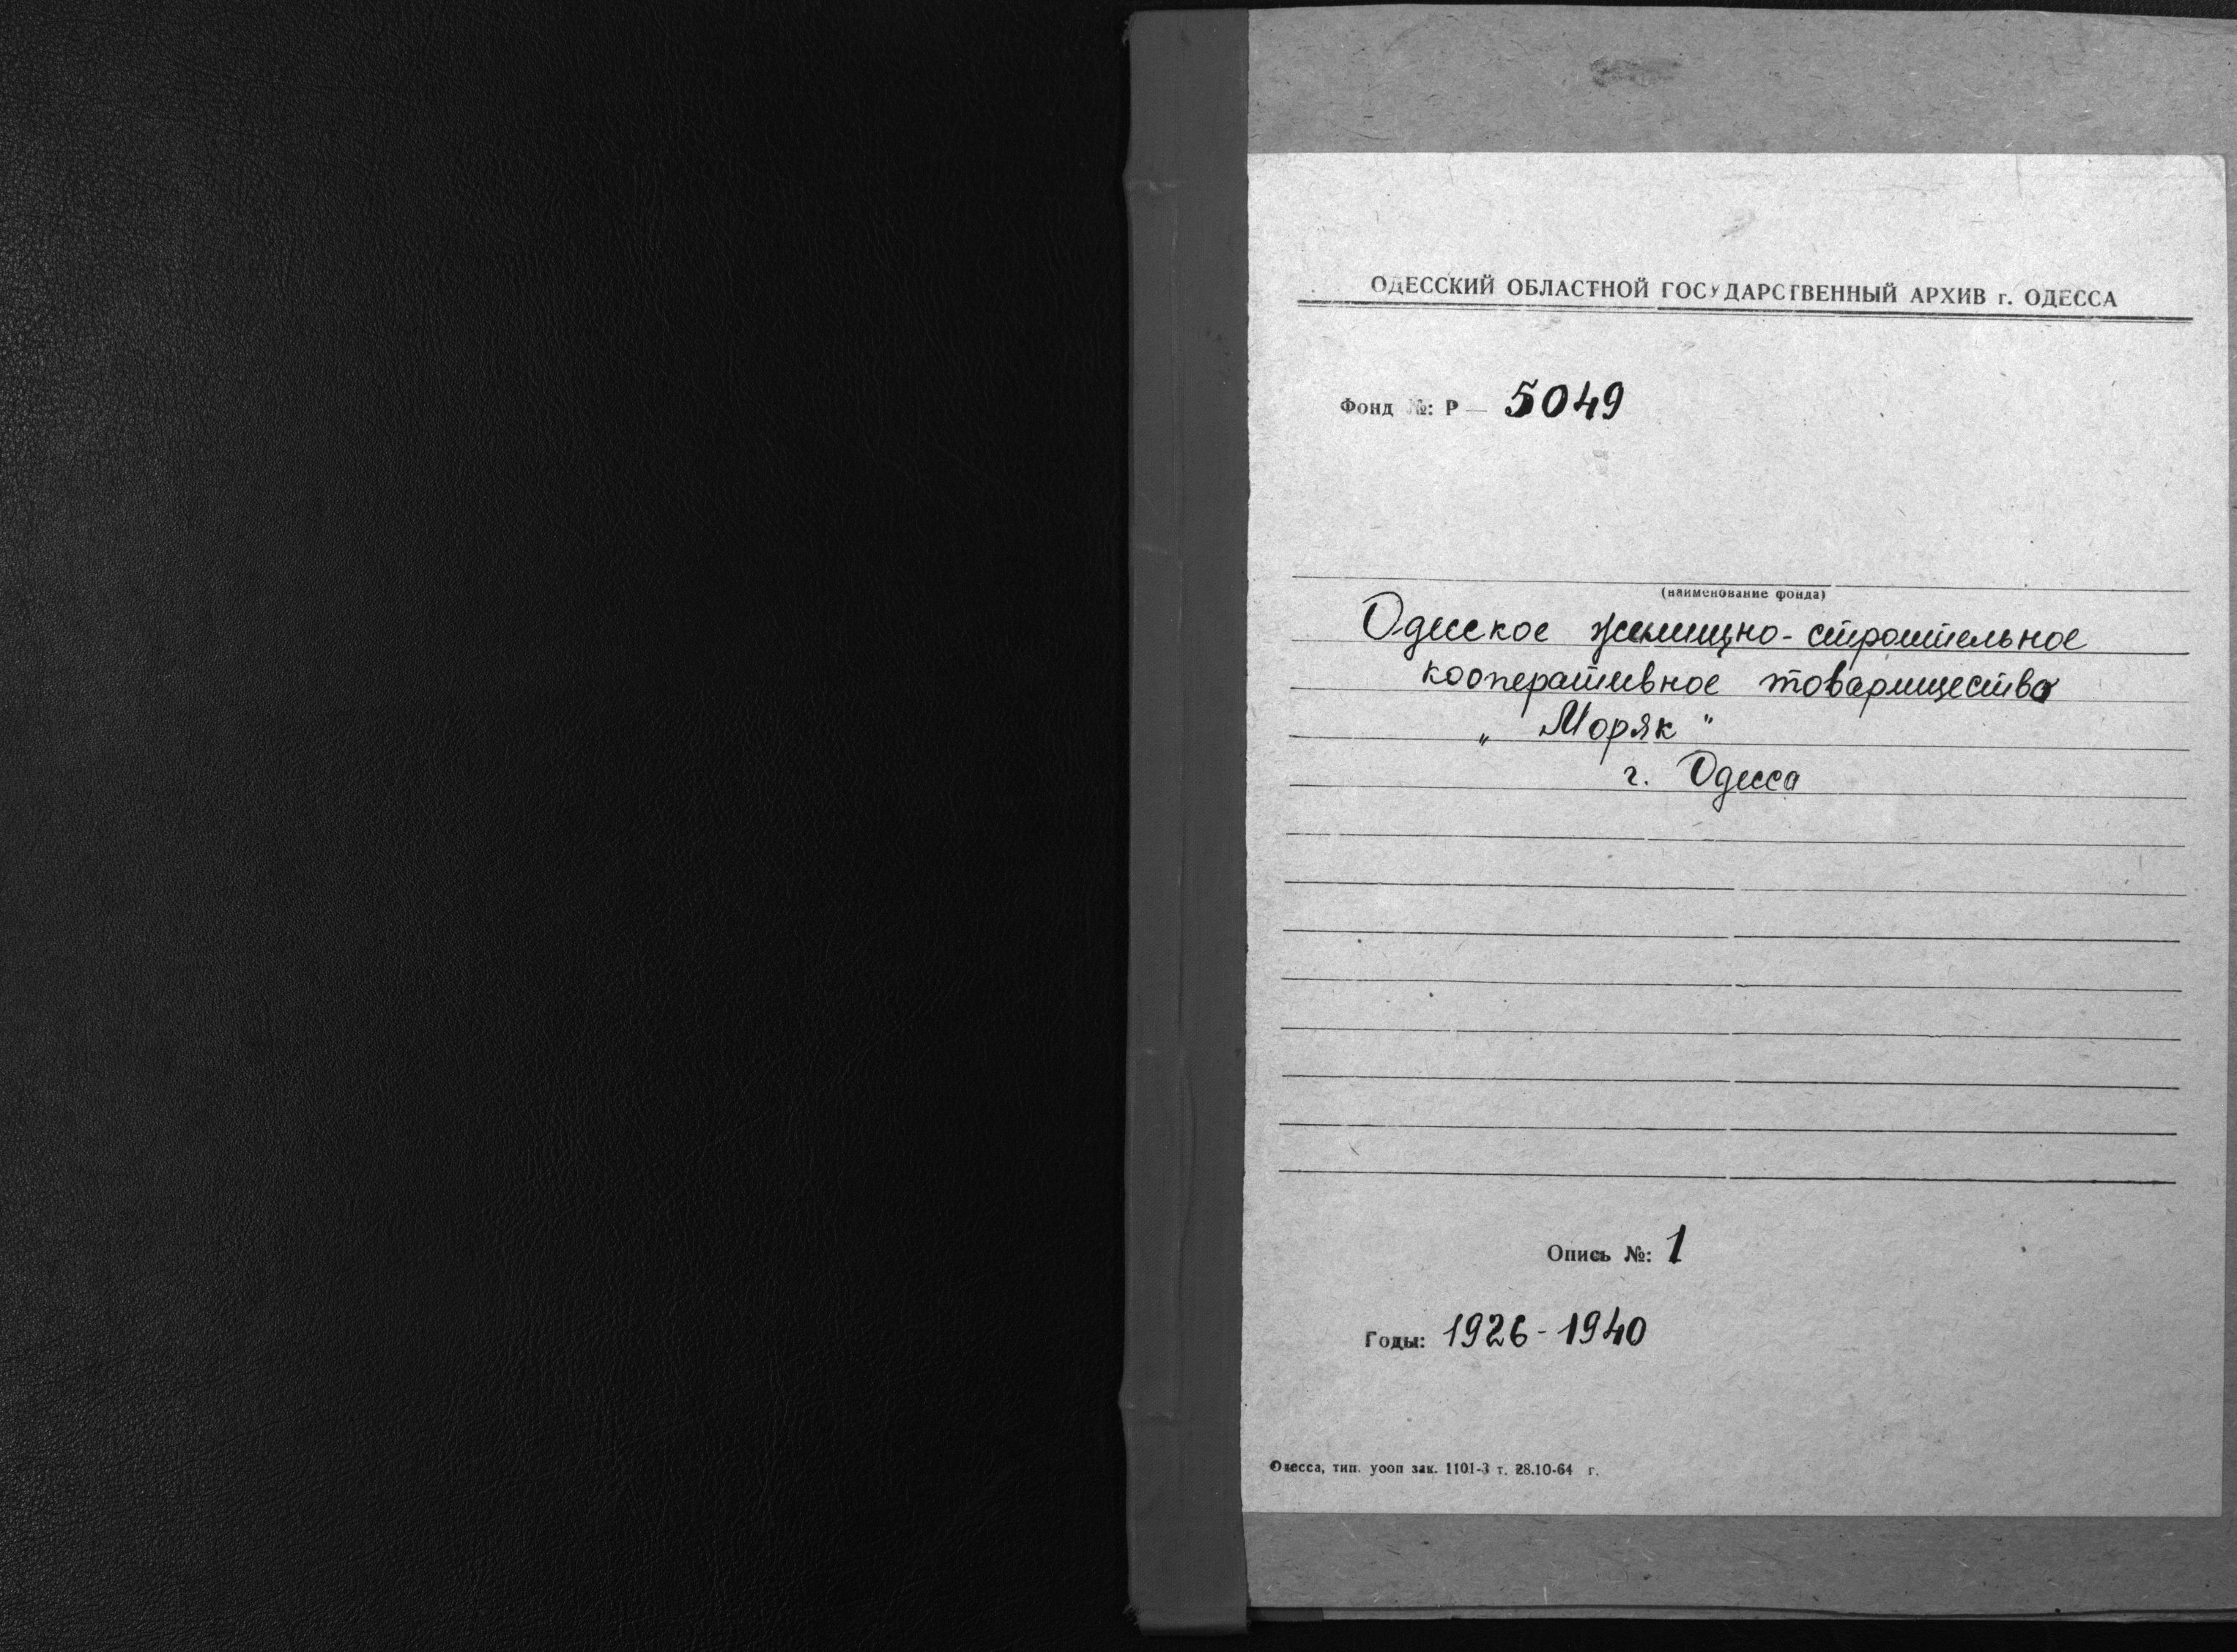 ОДЕССКИЙ ОБЛАСТНОЙ ГОСУДАРСТВЕННЫЙ АРХИВ г. ОДЕССА
Фонд №: Р — 5049
(наименование фонда)
Одесское жилищно-строительное
кооперативное товарищество
„ Моряк "
г. Одесса
Опись №: 1
Годы: 1926-1940
Одесса, тип. уооп зак. 1101-3 т. 28.10-64 г.